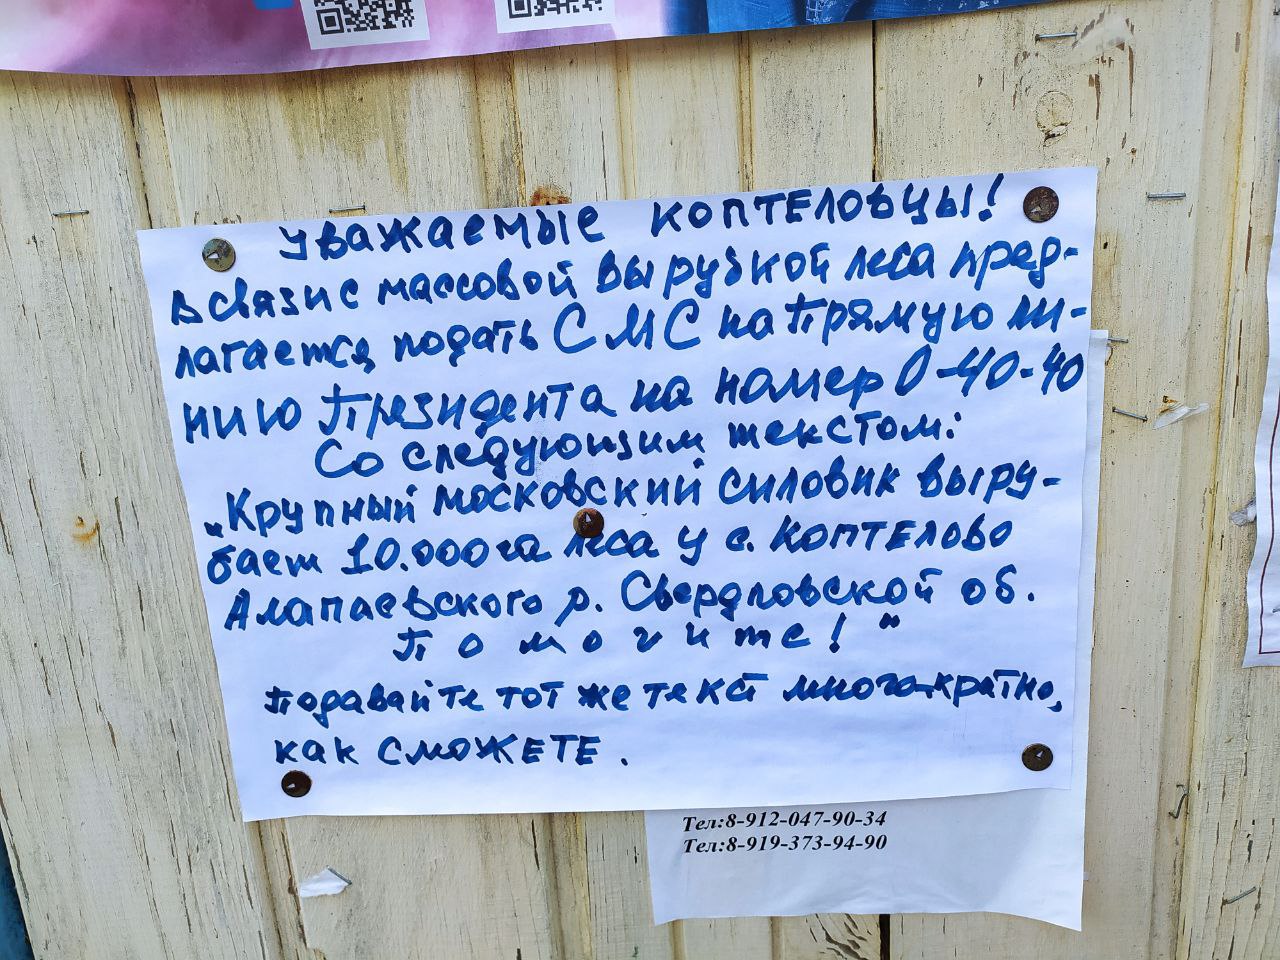 Уважаемые коптеловцы!
В связи с массовой вырубкой леса пред-
лагается подать СМС на прямую ли-
нию Президента на номер 0-40-40
Со следующим текстом:
„Крупный московский силовик выру-
бает 10.000 га леса у с. Коптелово
Алапаевского р. Свердловской об.
Помогите!"
Подавайте тот же текст многократно,
как сможете.
Тел:8-912-047-90-34
Тел:8-919-373-94-90